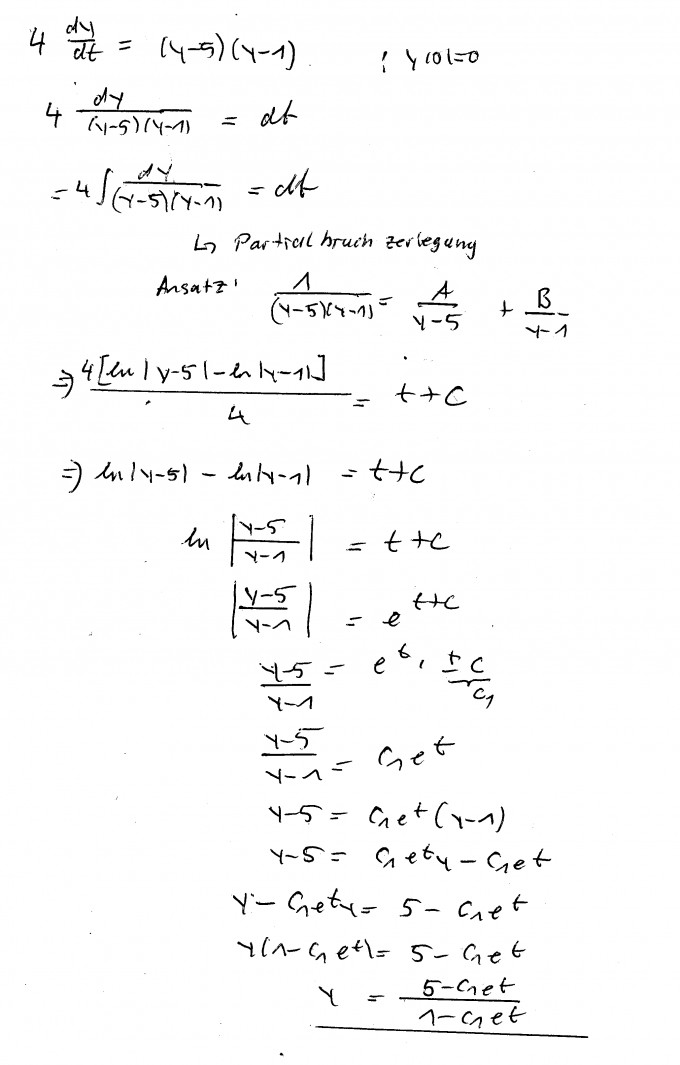 4 dy/dt = (y-5)(y-1) ; y(0)=0
4 dy/((y-5)(y-1)) = dt
= 4 ∫ dy/((y-5)(y-1)) = dt
↳ Partialbruchzerlegung
Ansatz: 1/((y-5)(y-1)) = A/(y-5) + B/(y-1)
⇒ 4[ln|y-5|-ln|y-1|]/4 = t+C
⇒ ln|y-5| - ln|y-1| = t+C
ln |(y-5)/(y-1)| = t+C
|(y-5)/(y-1)| = e^(t+C)
(y-5)/(y-1) = e^t · ±C
C₁
(y-5)/(y-1) = C₁e^t
y-5 = C₁e^t(y-1)
y-5 = C₁e^t y - C₁e^t
y - C₁e^t y = 5 - C₁e^t
y(1-C₁e^t) = 5 - C₁e^t
y = (5-C₁e^t)/(1-C₁e^t)